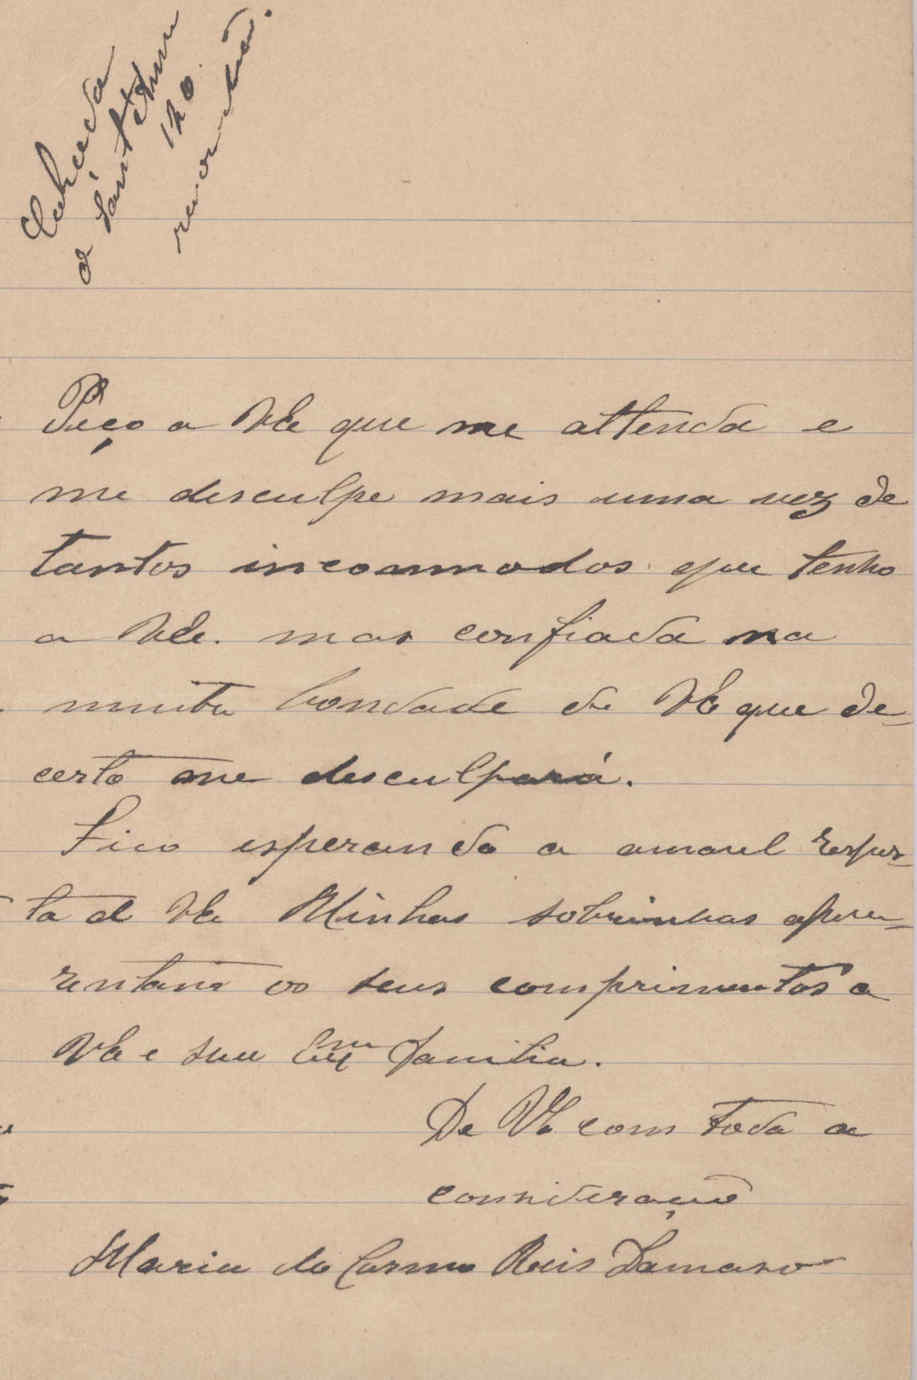 Calçada
de Sant'Anna
120.
Peço a VEª que me attenda e
me desculpe mais uma vez de
tantos incommodos que tenho
a VEª. mas confiada na
muita bondade de VEª que de-
certo me desculpará.
Fico esperando a amavel respos-
ta de VEª Minhas sobrinhas apre-
zentão os seus comprimentos a
VEª e sua Exma familia.
De VEª com toda a
consideração
Maria do Carmo Reis Damaso